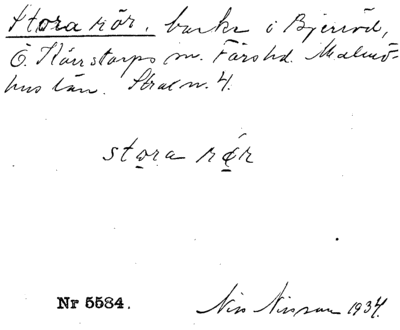 Stora rör. backe i Bjeröd,
Ö. Kärrstorps sn. Färs hd. Malmö-
hus län. Strax n. 4.
stora rör
Nr 5584. Nils Nilsson 1937.